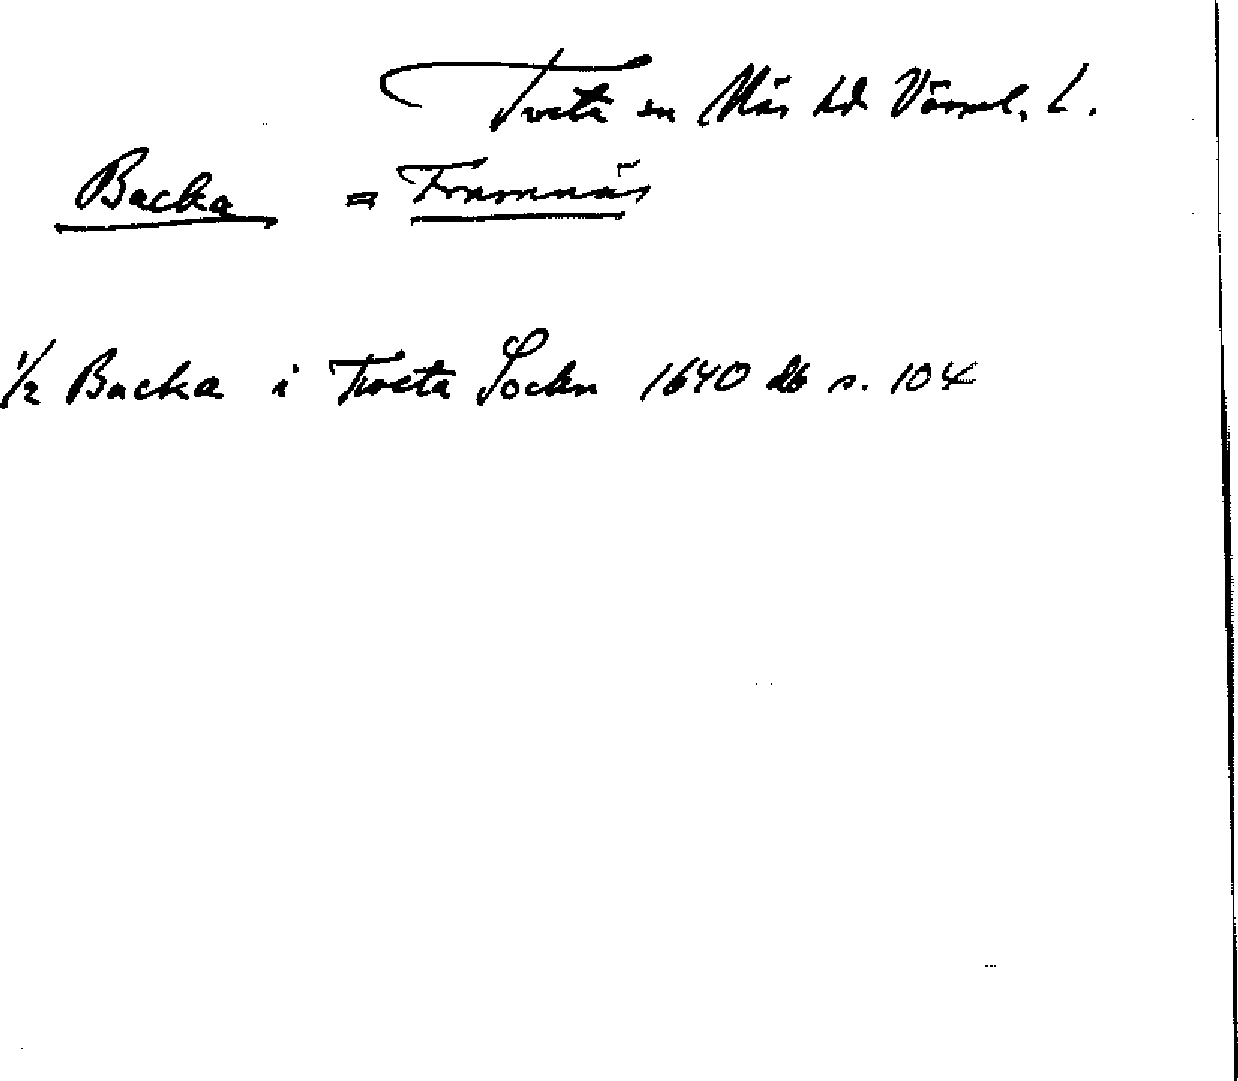 Tveta sn Näs hd Värml. L.
Backa = Framnäs
1/2 Backa i Tweta Sockn 1640 db s. 104